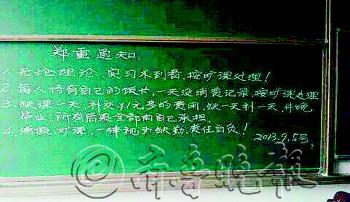 郑重通知
1、无论理论、实习未到者,按旷课处理!
2、每人持有自己的饭卡,一天没消费记录,按旷课处理
3、缺课一天,补交41元多的费用,缺一天补一天,并晚
毕业,所有后果全部由自己承担.
4、请假,旷课,一律视为缺勤,责任自负!
2013.9.5号
南鲁晚报